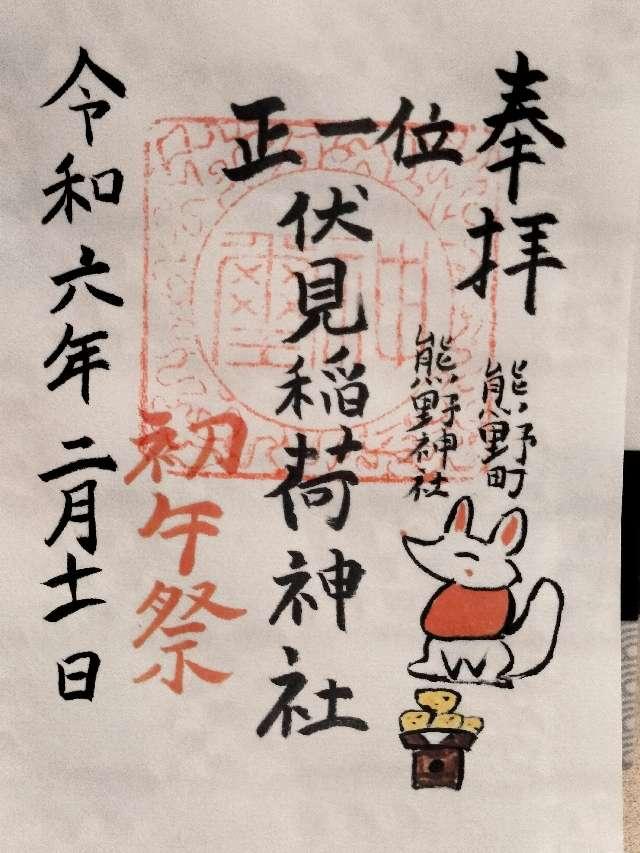 奉拝
熊野町
熊野神社
正一位
伏見稲荷神社
初午祭
令和六年二月十一日